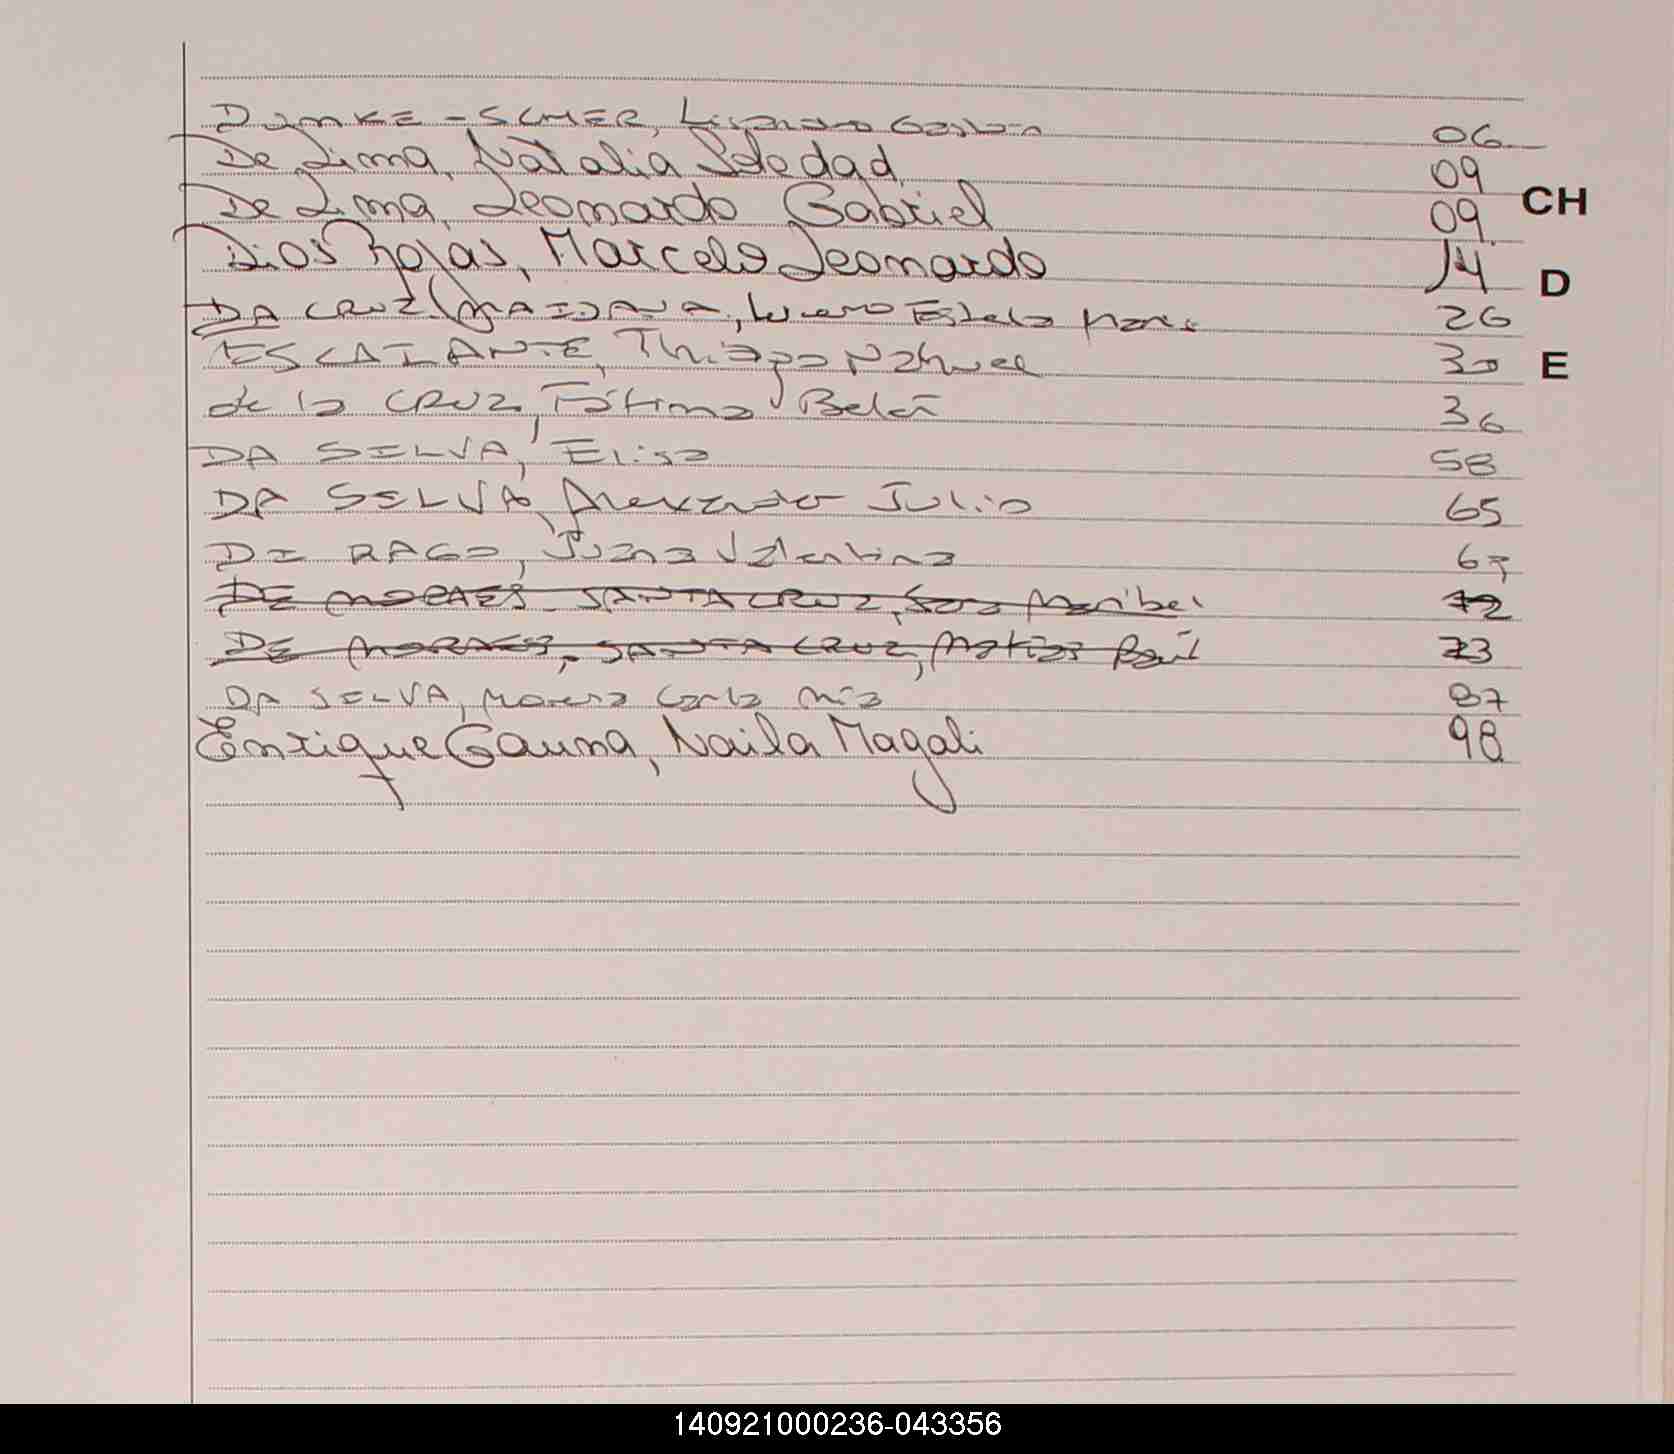 DYMKE - SCHER, Leonardo Gastón 06
De Lima, Natalia Soledad 09
De Lima, Leonardo Gabriel 09
CH
Dios Rojas, Marcelo Leonardo 14
D
DA CRUZ MAIDANA, Lucero Estela 26
ESCALANTE, Thiago Nahuel 30
E
de la CRUZ, Fátima Belén 36
DA SILVA, Elisa 58
DA SILVA, Alexander Julio 65
DI RAGO, Juana Valentina 67
DE MORAES - SANTA CRUZ, Maribel 72
DE MORAES, - SANTA CRUZ, Matías Raúl 73
DA SILVA, Morena Carla Mía 87
Enrique Gauna, Naila Magali 98
140921000236-043356